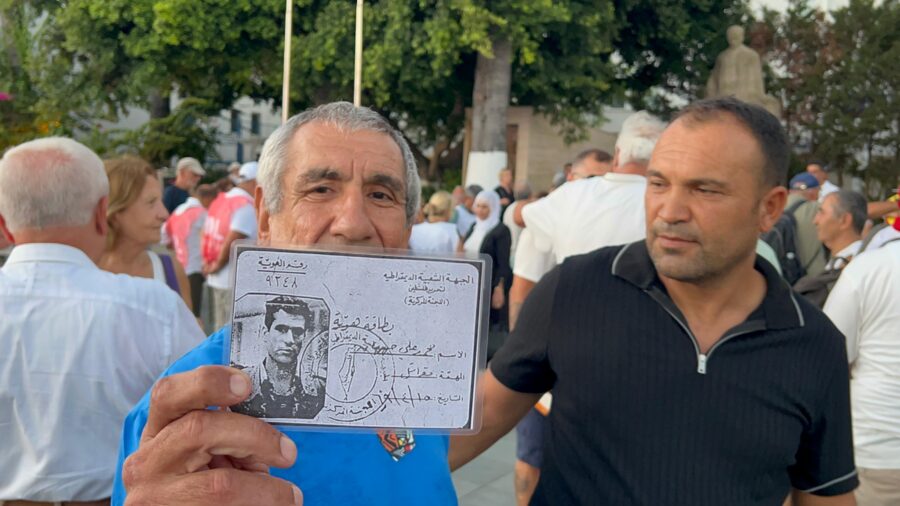 رقم الهوية
٩٢٤٨
الجبهة الشعبية الديمقراطية
لتحرير فلسطين
(اللجنة المركزية)
بطاقة هوية
الاسم: محمد علي
المهنة: مقاتل
التاريخ: